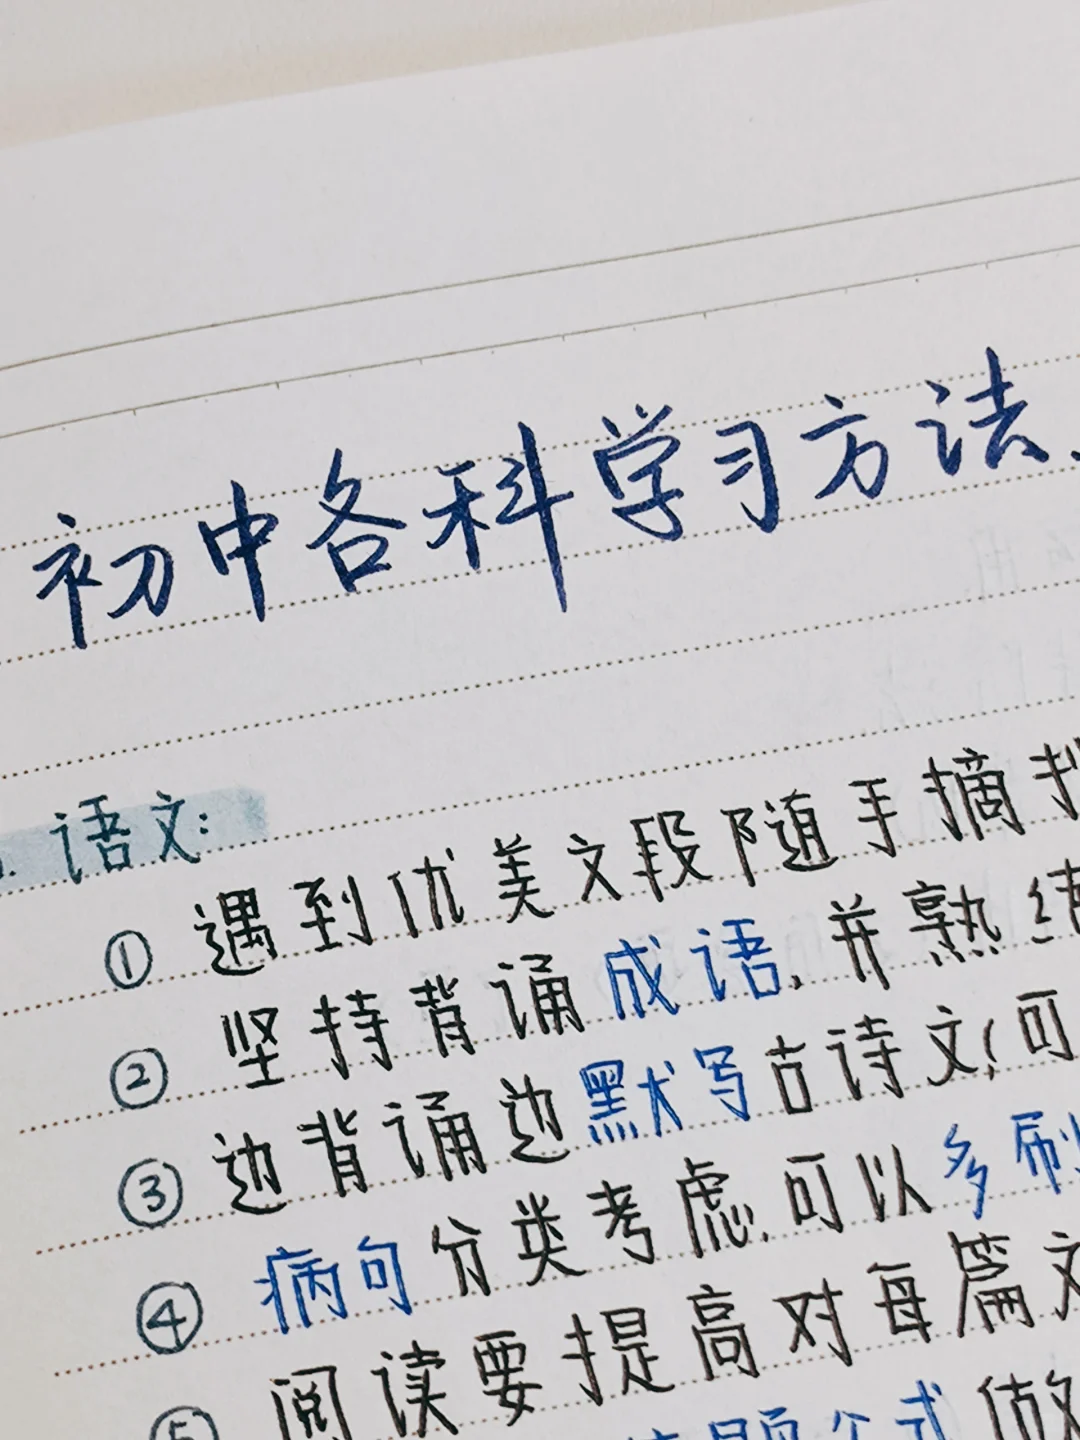 初中各科学习方法.
. 语文:
① 遇到优美文段随手摘
② 坚持背诵成语,并熟练
③ 边背诵边默写古诗文!可
④ 病句分类考虑,可以多刷
⑤ 阅读要提高对每篇文
题公式 做